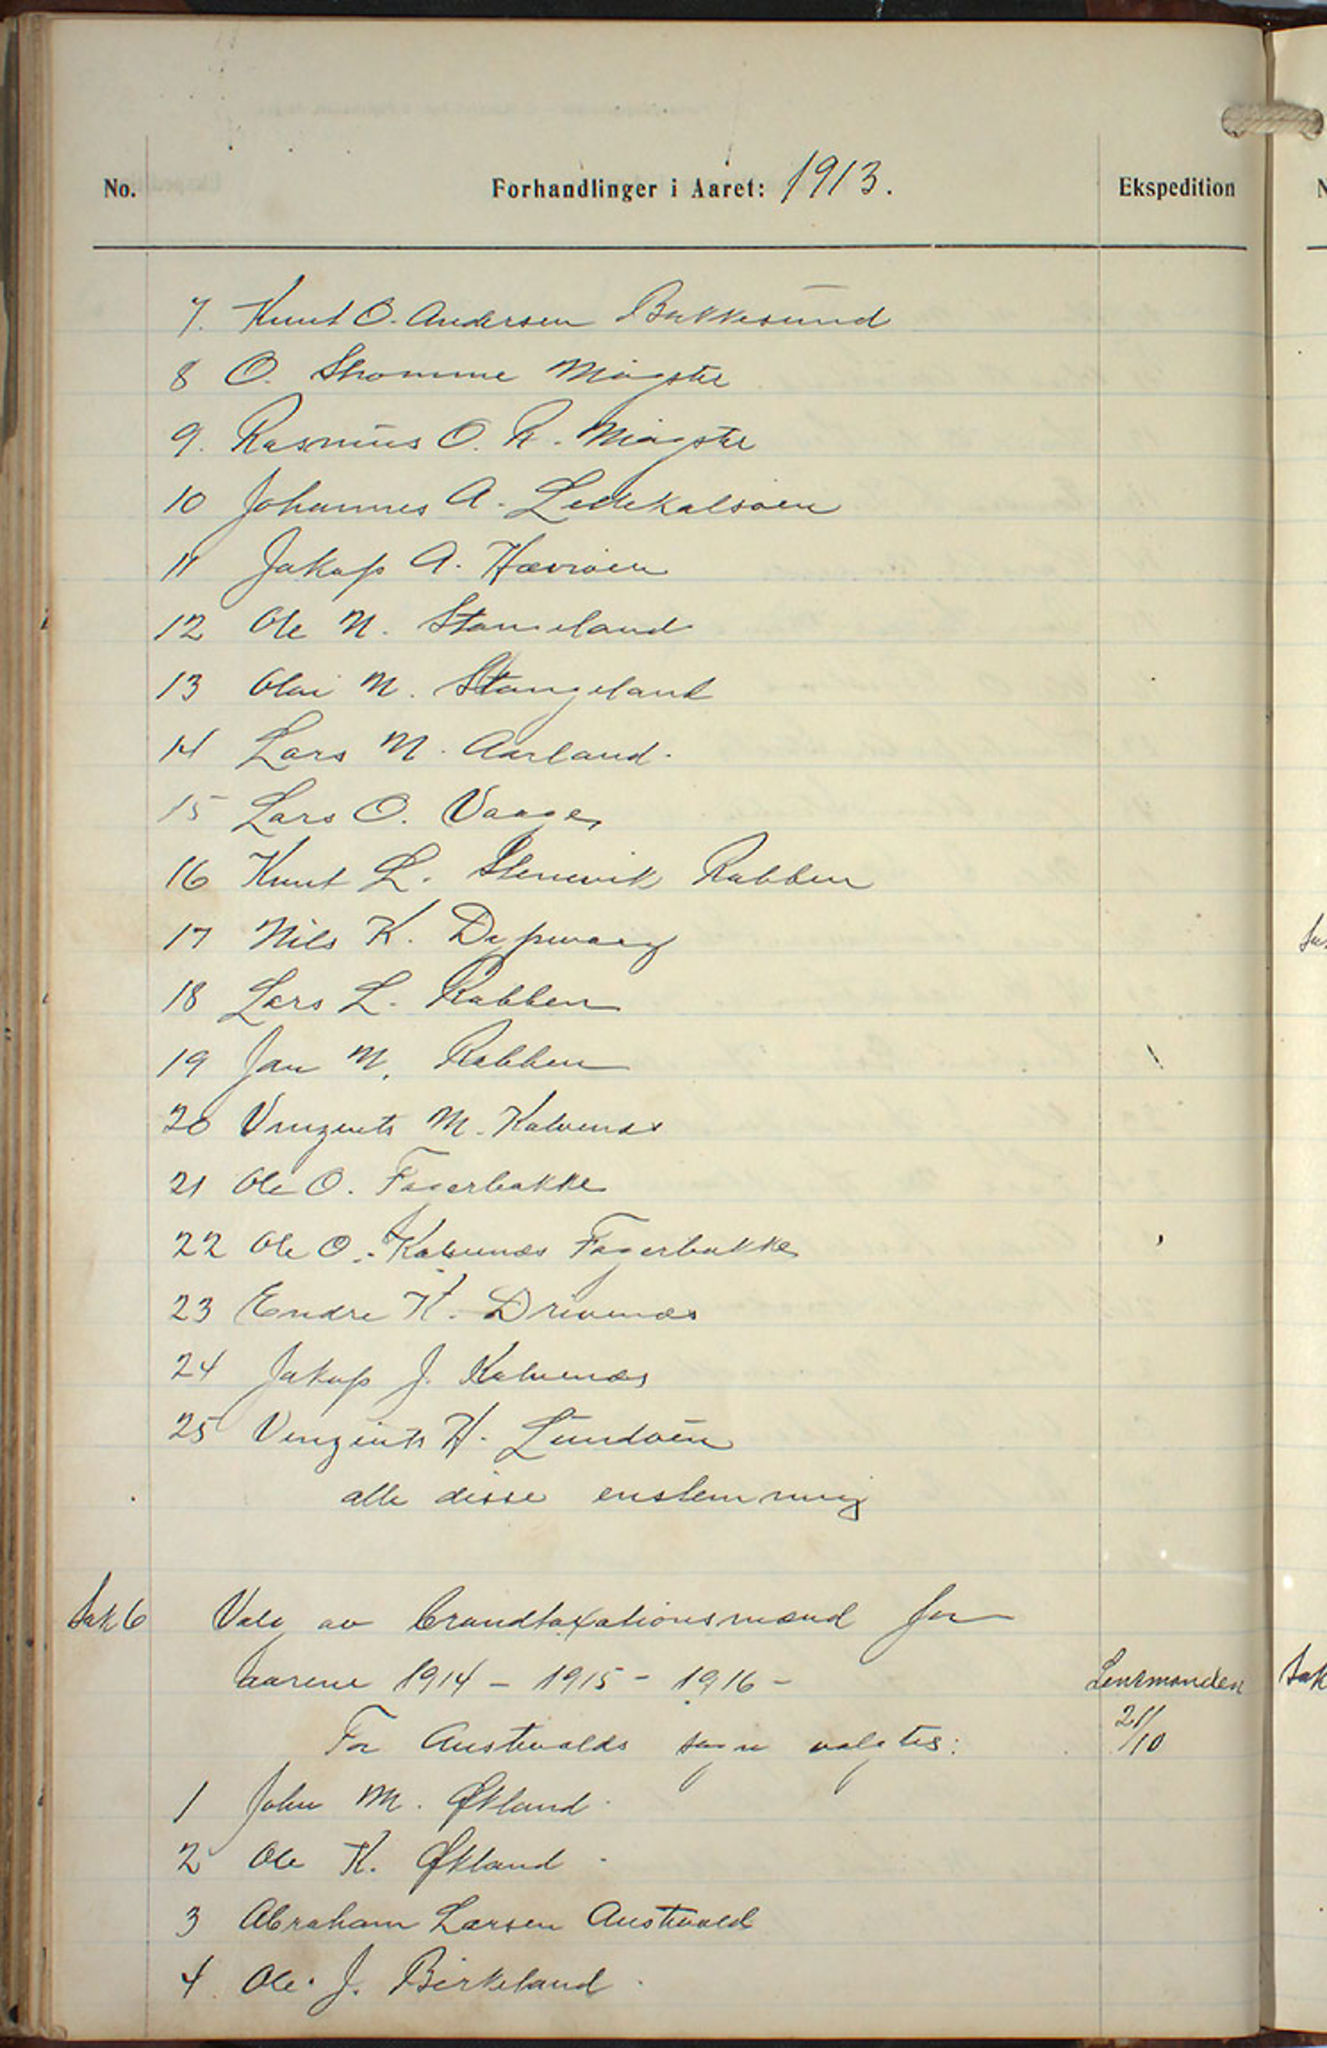 No. Forhandlinger i Aaret: 1913. Ekspedition
7. Knut O. Andersen Bakkesund
8 O. Stromme Møgster
9. Rasmus O. R. Møgster
10 Johannes A. Litlekalsøen
11 Jakop A. Hævrøen
12 Ole N. Stangeland
13 Olai N. Stangeland
14 Lars M. Aarland.
15 Lars O. Vaage
16 Knut L. Stenevik Rabben
17 Nils K. Djupevaag
18 Lars L. Rabben
19 Jan M. Rabben
20 Vinzents M. Kalvenæs
21 Ole O. Fagerbakke
22 Ole O. Kalvenæs Fagerbakke
23 Endre K. Drivenæs
24 Jakop J. Kalvenæs
25 Vinzents H. Lundøen
alle disse enstemmig
Sak 6 Valg av brandtaxationsmænd for
aarene 1914 - 1915 - 1916 - Lensmanden
21/10
For Austevolds sogn valgtes:
1 John M. Økland
2 Ole K. Økland
3 Abraham Larsen Austevold
4 Ole J. Birkeland
Sak